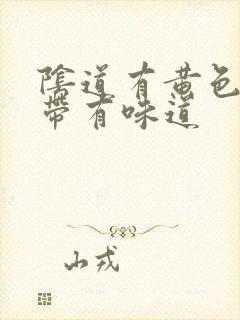 陰道有黃色
帶有味道
山戎